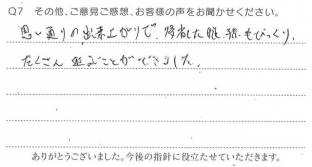 Q7 その他、ご意見ご感想、お客様の声をお聞かせください。
思い通りの出来上がりで、帰省した娘、孫もびっくり、
たくさん 遊ぶことができました。
ありがとうございました。今後の指針に役立たせていただきます。